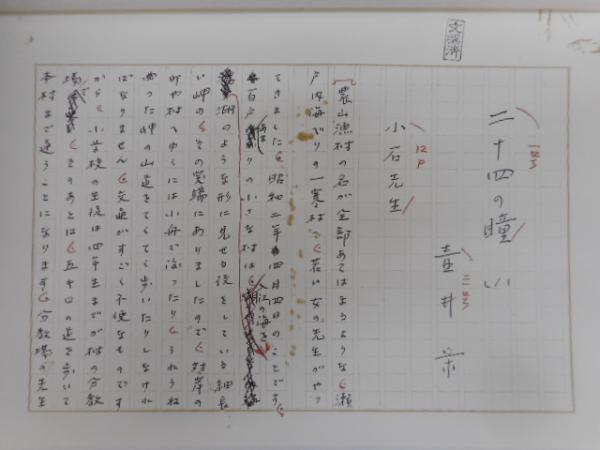 文選済
二十四の瞳
壺井栄
小石先生
農山漁村の名が全部あてはまるような、瀬
戸内海べりの一寒村へ、若い女の先生がやつ
てきました。昭和二年四月四日のことです。
百戸あまりの小さな村は、入江の海を
湖のような形に見せる役をしている細長
い岬の、その突端にありましたので、対岸の
町や村へゆくには小舟で渡つたり、うねうね
曲つた岬の山道をてくてく歩いたりしなけれ
ばなりません。交通がすごく不便なものです
から、小学校の生徒は四年生までが村の分教
場で、そのあとは、五キロの道を歩いて
本村まで通うことになります。分教場の先生